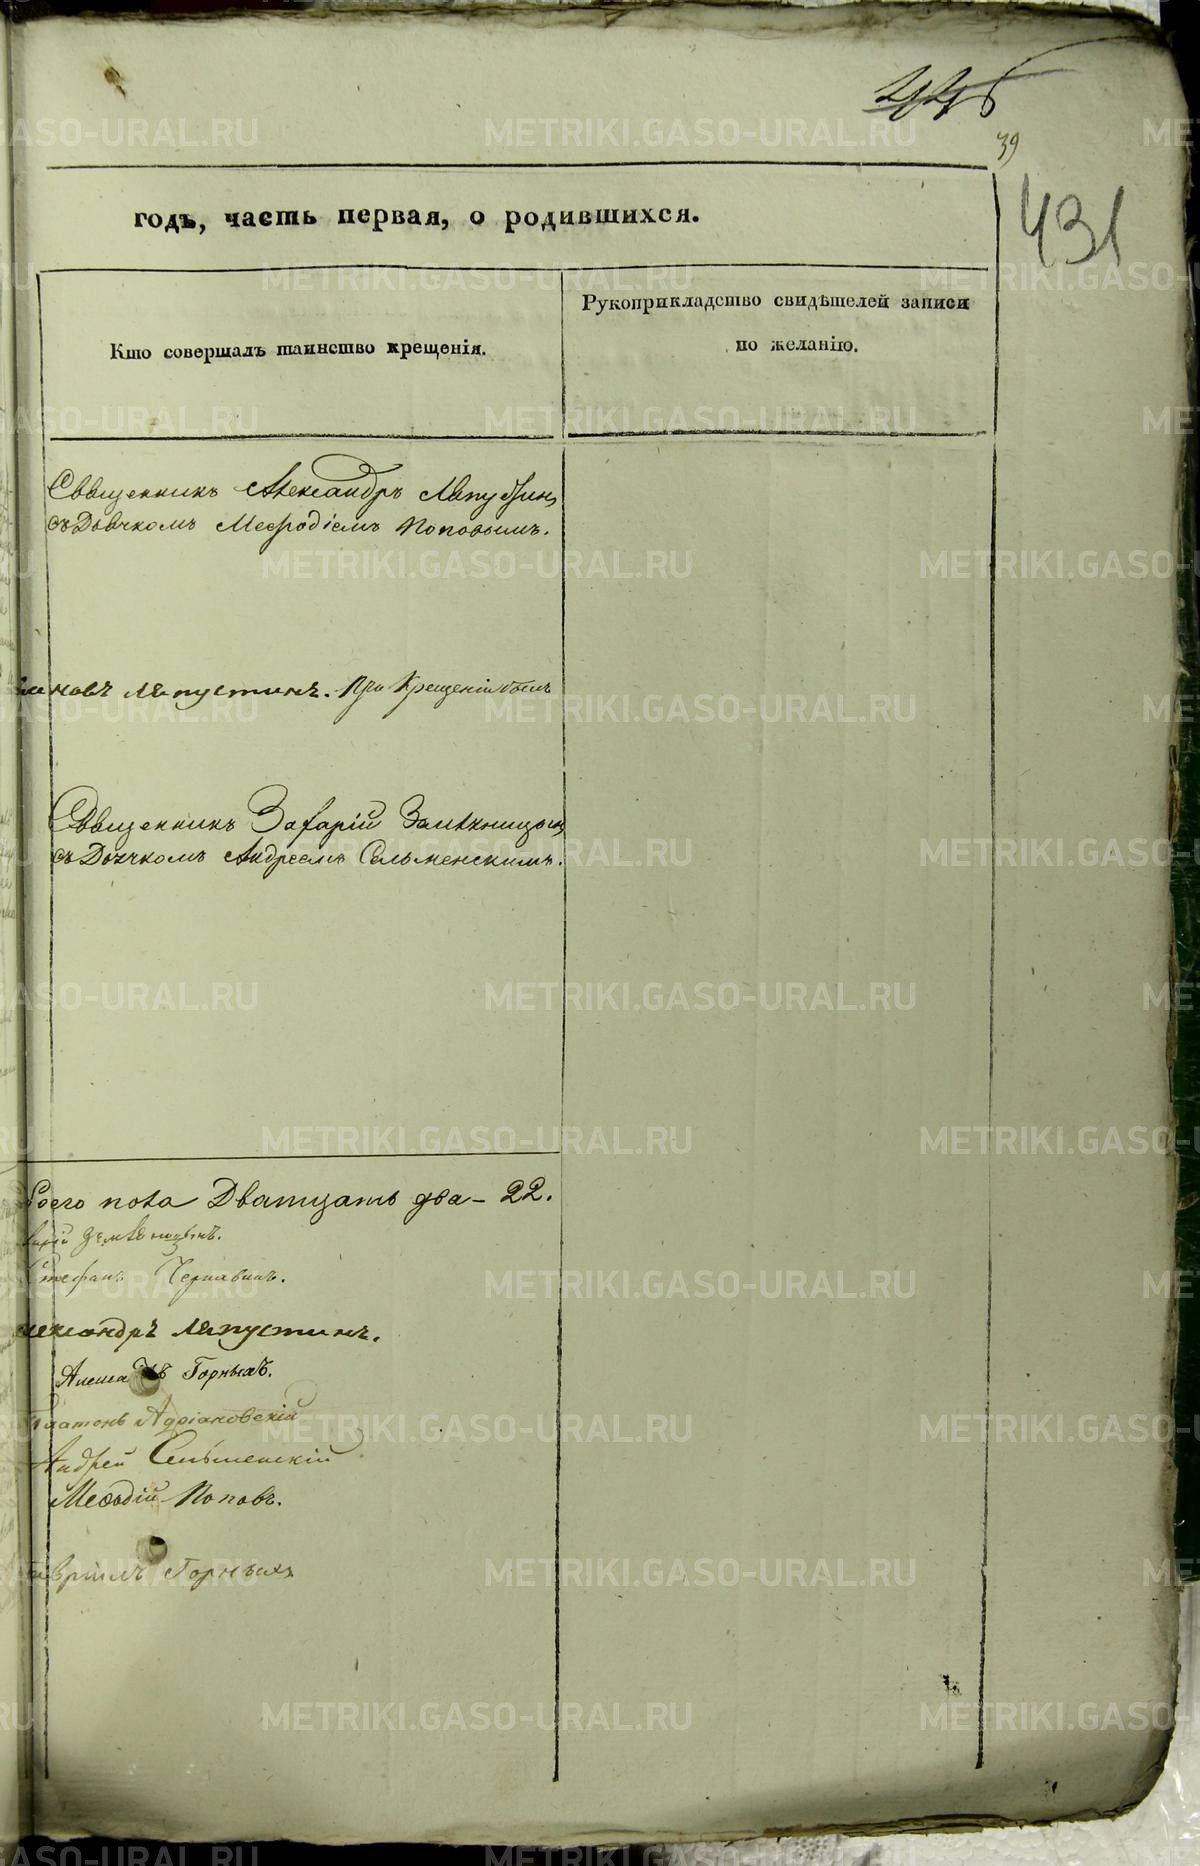 446
39
431
годъ, часть первая, о родившихся.
Кто совершалъ таинство крещенія.
Рукоприкладство свидѣтелей записи
по желанію.
Священникъ Александръ Ляпустинъ
съ Дьячкомъ Меѳодіемъ Поповымъ.
новъ Ляпустинъ. При Крещеніи былъ
Священникъ Захарій Земляницынъ
съ Дьячкомъ Андреемъ Сельменскимъ.
боего пола Дватцать два – 22.
харій Земляницынъ.
Стефанъ Чернавинъ.
лександръ Ляпустинъ.
Горныхъ.
Платонъ Адріановскій
Андрей Сельменскій
Меѳодій Поповъ.
авріилъ Горныхъ
METRIKI.GASO-URAL.RU